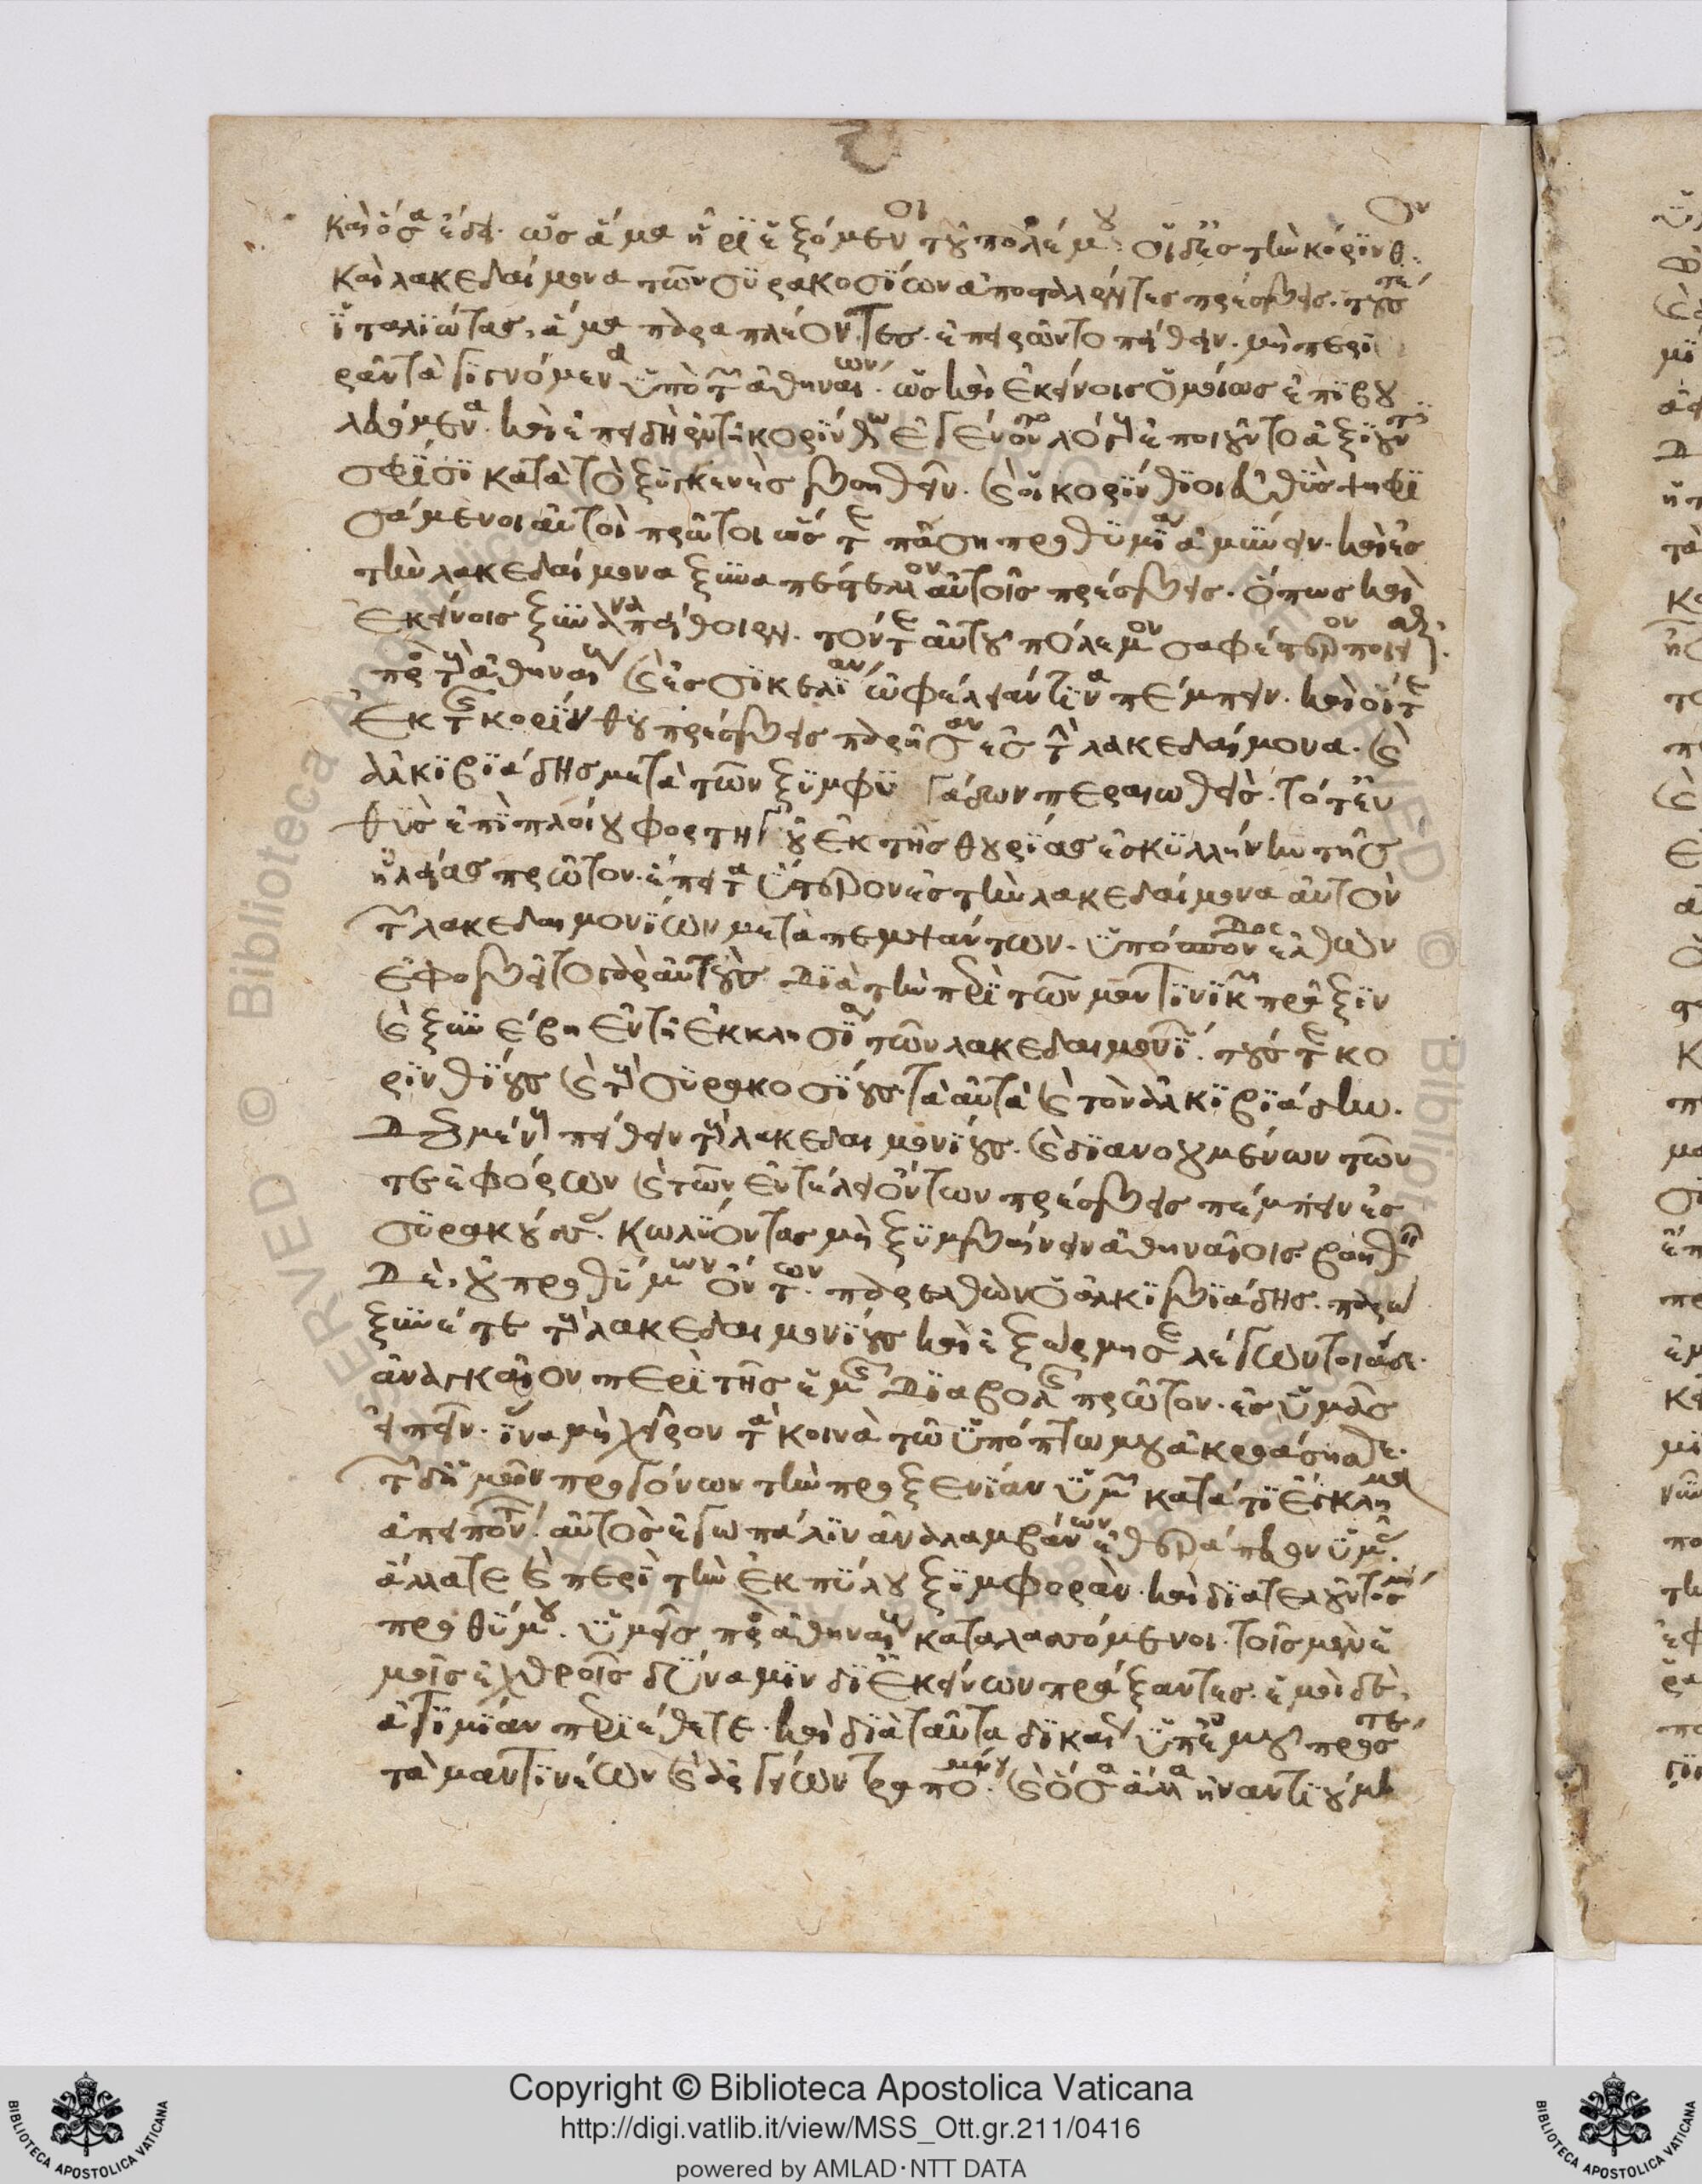 καὶ ὅσα ἔδει. ὡς ἅμα ἦρι ἑξόμενοι τοῦ πολέμου. οἱ δ' ἐς τὴν κόρινθον
καὶ λακεδαίμονα τῶν συρακοσίων ἀποσταλέντες πρέσβεις. τούς τε
ἰταλιώτας, ἅμα παραπλέοντες. ἐπειρῶντο πείθειν. μὴ περιο
ρᾶν τὰ γιγνόμενα ὑπὸ τῶν ἀθηναίων. ὡς καὶ ἐκείνοις ὁμοίως ἐπιβου
λευόμενα. καὶ ἐπειδὴ ἐν τῇ κορίνθῳ ἐγένοντο λόγους ἐποιοῦντο ἀξιοῦντες
σφίσι κατὰ τὸ ξυγγενὲς βοηθεῖν. καὶ οἱ κορίνθιοι εὐθὺς ψηφι
σάμενοι αὐτοὶ πρῶτοι ὥστε πάσῃ προθυμίᾳ ἀμύνειν. καὶ ἐς
τὴν λακεδαίμονα ξυναπέστελλον αὐτοῖς πρέσβεις. ὅπως καὶ
ἐκείνους ξυναναπείθοιεν. τόν τε αὐτοῦ πόλεμον σαφέστερον ποιεῖσθαι
πρὸς τοὺς ἀθηναίους καὶ ἐς σικελίαν ὠφέλειάν τινα πέμπειν. καὶ οἵ τε
ἐκ τῆς κορίνθου πρέσβεις παρῆσαν ἐς τὴν λακεδαίμονα. καὶ
ἀλκιβιάδης μετὰ τῶν ξυμφυγάδων περαιωθεὶς. τότ' εὐ
θὺς ἐπὶ πλοίου φορτηγοῦ ἐκ τῆς θουρίας ἐς κυλλήνην τῆς
ἠλείας πρῶτον. ἔπειτα ὕστερον ἐς τὴν λακεδαίμονα αὐτῶν
τῶν λακεδαιμονίων μεταπεμψάντων. ὑπόσπονδος ἐλθών
ἐφοβεῖτο γὰρ αὐτοὺς διὰ τὴν περὶ τῶν μαντινικῶν πρᾶξιν
καὶ ξυνέβη ἐν τῇ ἐκκλησίᾳ τῶν λακεδαιμονίων. τούς τε κο
ρινθίους καὶ τοὺς συρακοσίους τὰ αὐτὰ καὶ τὸν ἀλκιβιάδην.
δεομένους πείθειν τοὺς λακεδαιμονίους. καὶ διανοουμένων τῶν
τε ἐφόρων καὶ τῶν ἐν τέλει ὄντων πρέσβεις πέμπειν ἐς
συρακούσας. κωλύοντας μὴ ξυμβαίνειν ἀθηναίοις. βοηθεῖν
δὲ, οὐ προθύμων ὄντων. παρελθὼν ὁ ἀλκιβιάδης. παρω
ξυνέ τε τοὺς λακεδαιμονίους καὶ ἐξώρμησε λέγων τοιάδε.
ἀναγκαῖον περὶ τῆς ἐμῆς διαβολῆς πρῶτον. ἐς ὑμᾶς
εἰπεῖν. ἵνα μὴ χεῖρον τὰ κοινὰ τῷ ὑπόπτῳ μου ἀκροάσησθε.
τῶν δ' ἐμῶν προγόνων τὴν προξενίαν ὑμῶν κατά τι ἔγκλημα
ἀπειπόντων. αὐτὸς ἐγὼ πάλιν ἀναλαμβάνων ἐθεράπευον ὑμᾶς.
ἄλλα τε καὶ περὶ τὴν ἐκ πύλου ξυμφορὰν. καὶ διατελοῦντός μου
προθύμου. ὑμεῖς πρὸς ἀθηναίους καταλλασσόμενοι. τοῖς μὲν ἐ
μοῖς ἐχθροῖς δύναμιν δι' ἐκείνων πράξαντες. ἐμοὶ δὲ,
ἀτιμίαν περιέθετε. καὶ διὰ ταῦτα δικαίως ὑπ' ἐμοῦ πρός τε
τὰ μαντινέων καὶ ἀργείων τραπομένου. καὶ ὅσα ἄλλα ἠναντιούμην